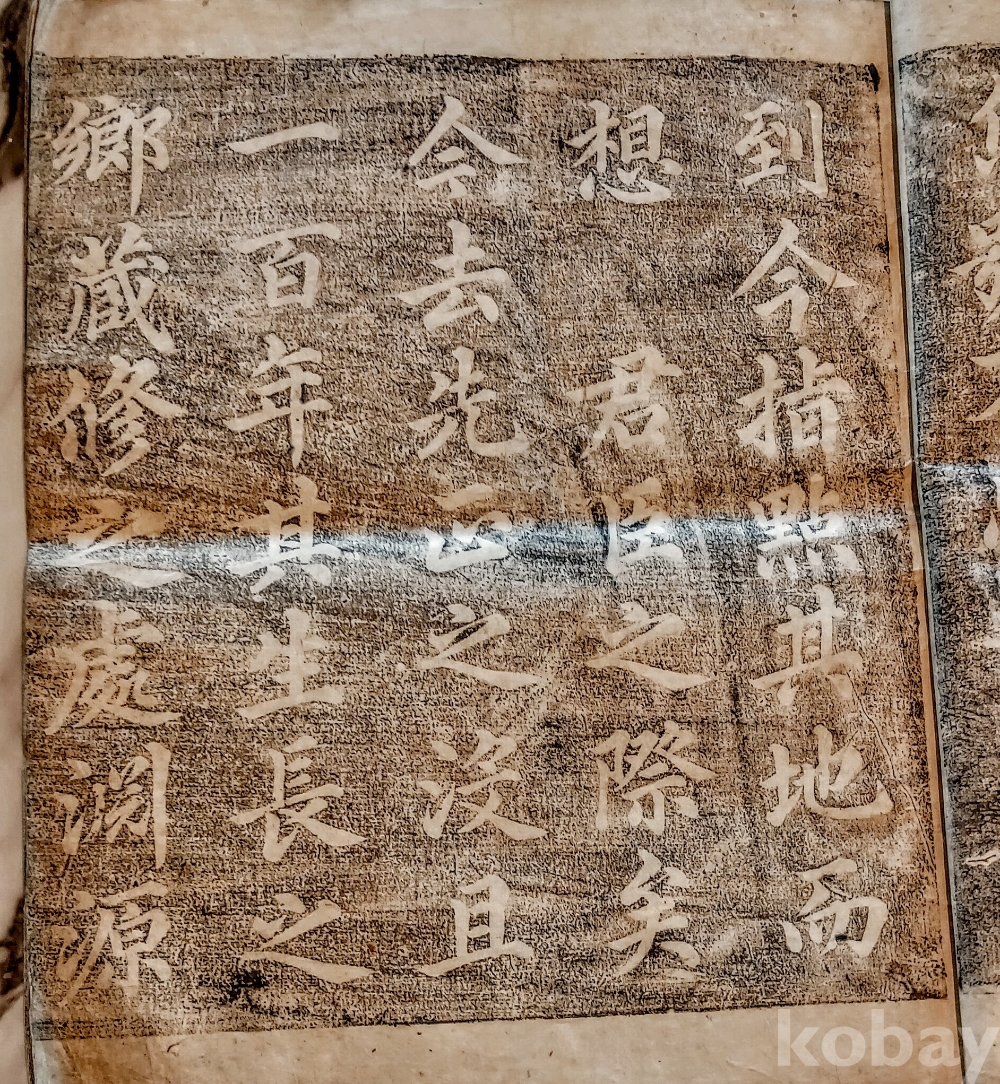 到今指點其地而
想　君臣之際矣
今去先正之沒且
一百年其生長之
鄉藏修之處淵源
kobay